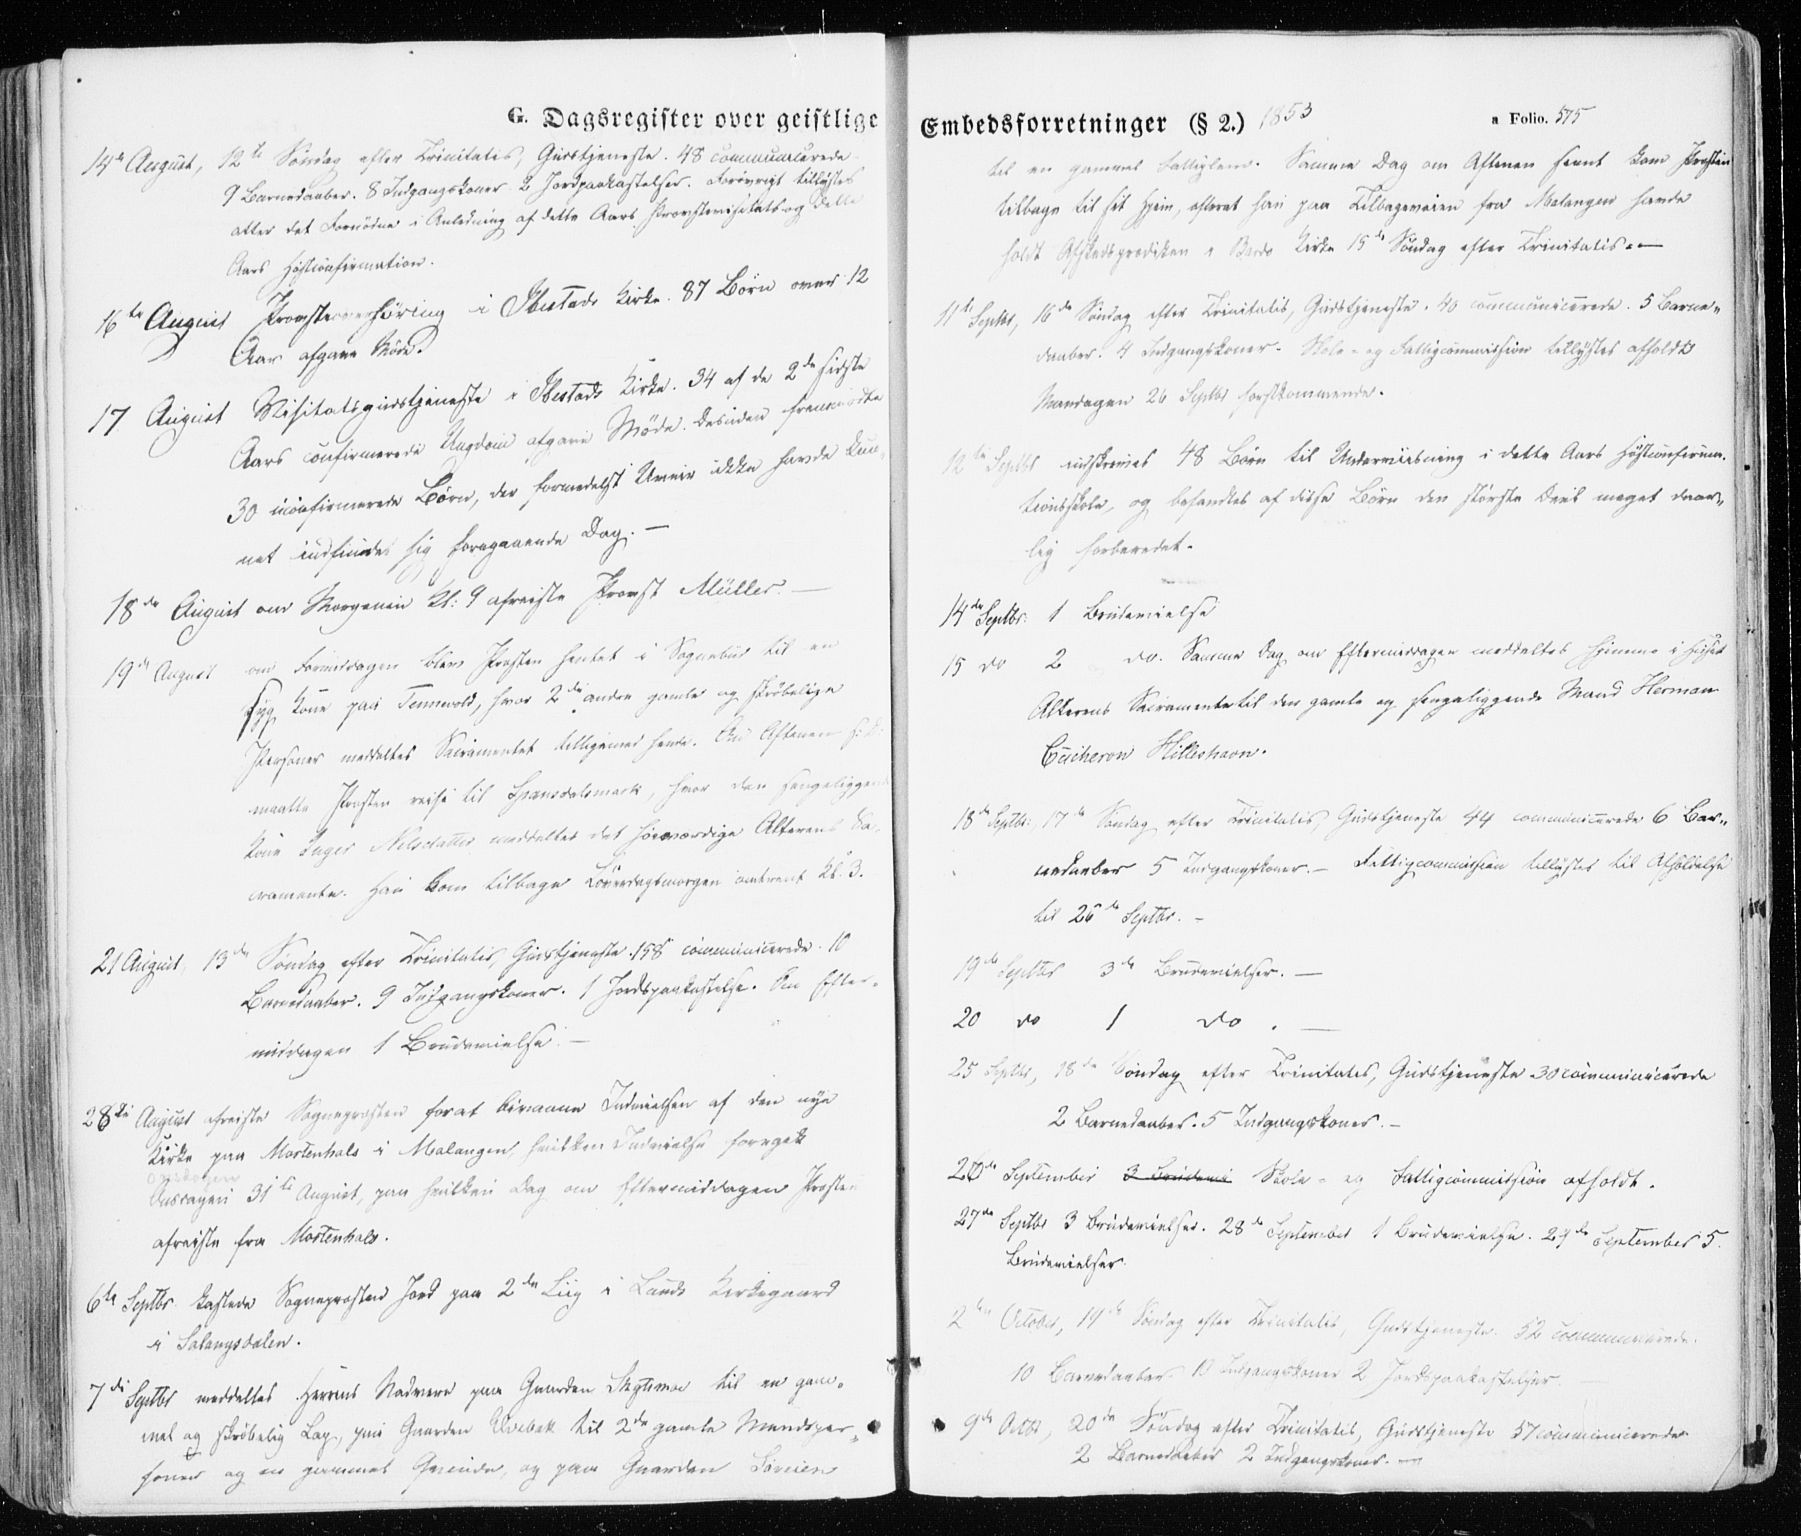 G. Dagsregister over geistlige
14de August, 12te Søndag efter Trinitatis, Gudstjeneste. 48 communicerede.
9 Barnedaaber. 8 Indgangskoner 2 Jordpaakastelser. Forøvrigt tillystes
atter det Fornødne i Anledning af dette Aars Provstevisitats og dette
Aars Høstconfirmation.
16te August Provsteoverhøring i Ibestads Kirke. 87 Børn over 12
Aar afgave Møde.
17 August Visitatsgudstjeneste i Ibestads Kirke. 34 af de 2de sidste
Aars confirmerede Ungdom afgave Møde. Desuden fremmødte
30 uconfirmerede Børn, der formedelst Uveir ikke havde kun-
net indfinde sig foregaaende Dag. —
18de August om Morgenen Kl: 9 afreiste Provst Müller. —
19de August om Formiddagen blev Præsten hentet i Sognebud til en
syg Kone paa Tennevold, hvor 2de andre gamle og skrøbelige
Personer meddeltes Sacramentet tilligemed hende. Om Aftenen
maatte Præsten reise til Spansdalsmark, hvor den sengeliggende
Kone Inger Nilsdatter meddeltes det høiværdige Alterens Sa-
cramente. Han kom tilbage Løverdagsmorgen omtrent Kl. 3.
21 August, 13de Søndag efter Trinitatis, Gudstjeneste. 158 communicerede. 10
Barnedaaber. 9 Indgangskoner. 1 Jordpaakastelse. Om Efter-
middagen 1 Brudevielse. —
28de August afreiste Sognepræsten for at bivaane Indvielsen af den nye
Kirke paa Mortenhals i Malangen, hvilken Indvielse foregik
Onsdagen
Onsdagen 31te August, paa hvilken Dag om Eftermiddagen Præsten
afreiste fra Mortenhals.
6te Septbr. kastede Sognepræsten Jord paa 2de Liig i Lunds Kirkegaard
i Salangsdalen.
7de Septbr meddeltes Herrens Nadvere paa Gaarden til en gam-
mel og skrøbelig Lap, paa Gaarden til 2de gamle Mandsper-
soner og en gammel Qvinde, og paa Gaarden
Embedsforretninger (§ 2.) 1853
a Folio. 575
til en gammel Fattiglem. Samme Dag om Aftenen seent kom Præsten
tilbage til sit Hjem, efterat han paa Tilbageveien fra Malangen havde
holdt Afskedsprædiken i Bardo Kirke 15de Søndag efter Trinitatis. —
11te Septbr, 16de Søndag efter Trinitatis, Gudstjeneste. 40 communicerede. 5 Barne-
daaber. 4 Indgangskoner. Skole- og Fattigcommission tillystes afholdt
Mandagen 26 Septbr førstkommende.
12te Septbr indskreves 48 Børn til Underviisning i dette Aars Høstconfirma-
tionsskole, og befandtes af disse Børn den største Deel meget daar-
lig forberedet.
14de Septbr. 1 Brudevielse
15 do 2 do. Samme Dag om Eftermiddagen meddeltes hjemme i Huset
Alterens Sacramente til den gamle og sengeliggende Mand Herman
Cucheron Hilleshavn.
18de Septbr: 17de Søndag efter Trinitatis, Gudstjeneste 44 communicerede 6 Bar-
nedaaber 5 Indgangskoner. — Fattigcommission tillystes til Afholdelse
til 26de Septbr. —
19de Septbr 3de Brudevielser. —
20 do 1 do. —
25 Septbr, 18de Søndag efter Trinitatis, Gudstjeneste 30 communicerede
2 Barnedaaber. 5 Indgangskoner. —
26de September 3 Brudevi Skole- og Fattigcommission afholdt.
27de Septbr 3 Brudevielser. 28de September 1 Brudevielse. 29de September 5
Brudevielser.
2den October, 19de Søndag efter Trinitatis, Gudstjeneste. 52 communicerede.
10 Barnedaaber 10 Indgangskoner 2 Jordspaakastelser. —
9de Octbr, 20de Søndag efter Trinitatis, Gudstjeneste 57 communicerede
2 Barnedaaber 2 Indgangskoner. —